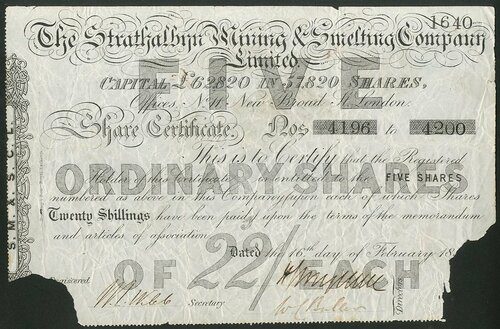 1640
The Strathalbyn Mining & Smelting Company
Limited.
FIVE
CAPITAL £62,820 IN 57,820 SHARES,
Offices, No. 11 New Broad St. London.
Share Certificate. Nos 4196 to 4200
This is to Certify that the Registered
Holder of this Certificate is entitled to the FIVE SHARES
ORDINARY SHARES
numbered as above in this Company upon each of which Shares
Twenty Shillings have been paid, upon the terms of the memorandum
and articles of association.
Dated the 16th day of February 18
OF 22/ EACH
Registered
Secretary
Directors
S.M.&S.C.L.